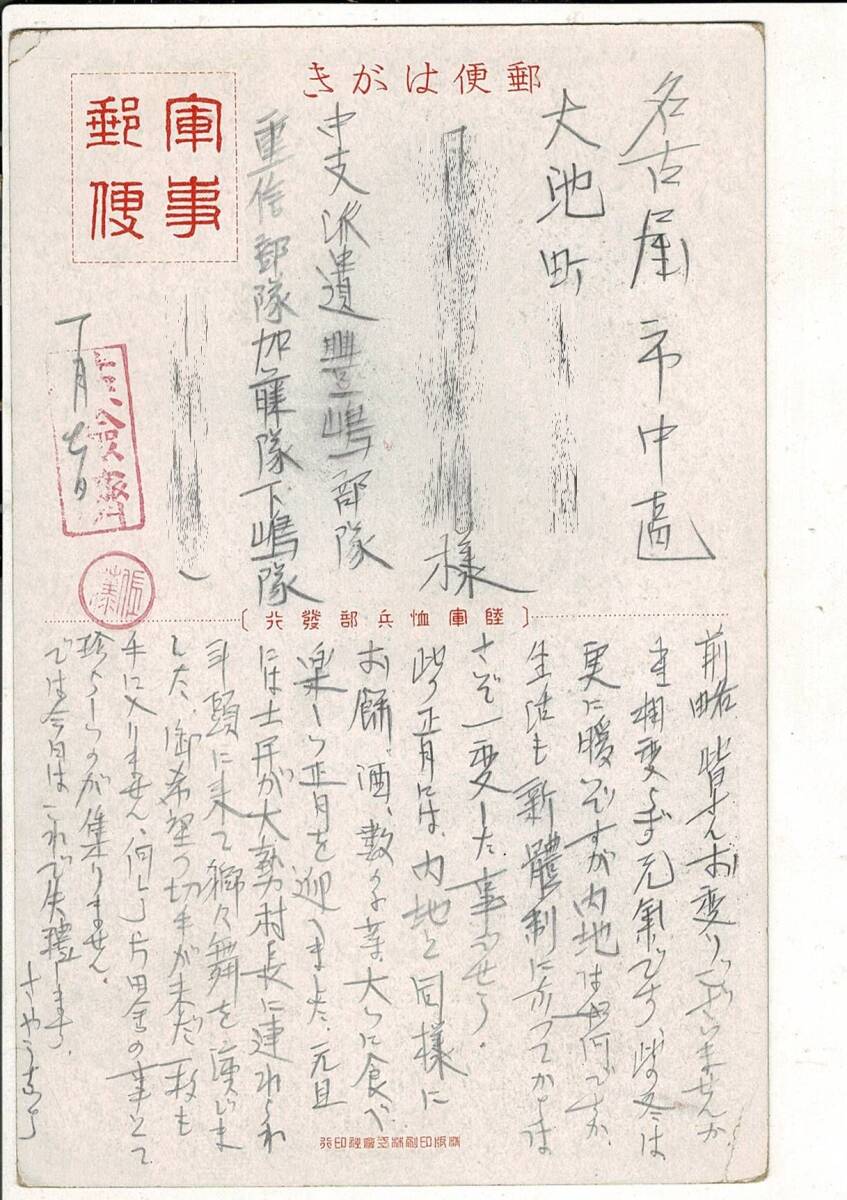 郵便はがき
軍事郵便
名古屋市中區
大池町
様
中支派遣豊嶋部隊
重信部隊加藤隊下嶋隊
一月七日
検閲濟
〔陸軍恤兵部發行〕
前略 皆さんお変りございませんか
実に暖いですが内地は如何ですか、
生活も新體制になってからは
さぞ一変した事でせう。
此の正月には、内地と同様に
お餅、酒、数の子等大いに食べ
楽しい正月を迎へました、元旦
には土民が大勢村長に連れられ
年頭に来て獅々舞を演じま
した、御希望の切手が未だ一枚も
手に入りません、何しろ片田舎の事とて
珍らしいのが集りません。
では今日はこれで失禮します。
さやうなら